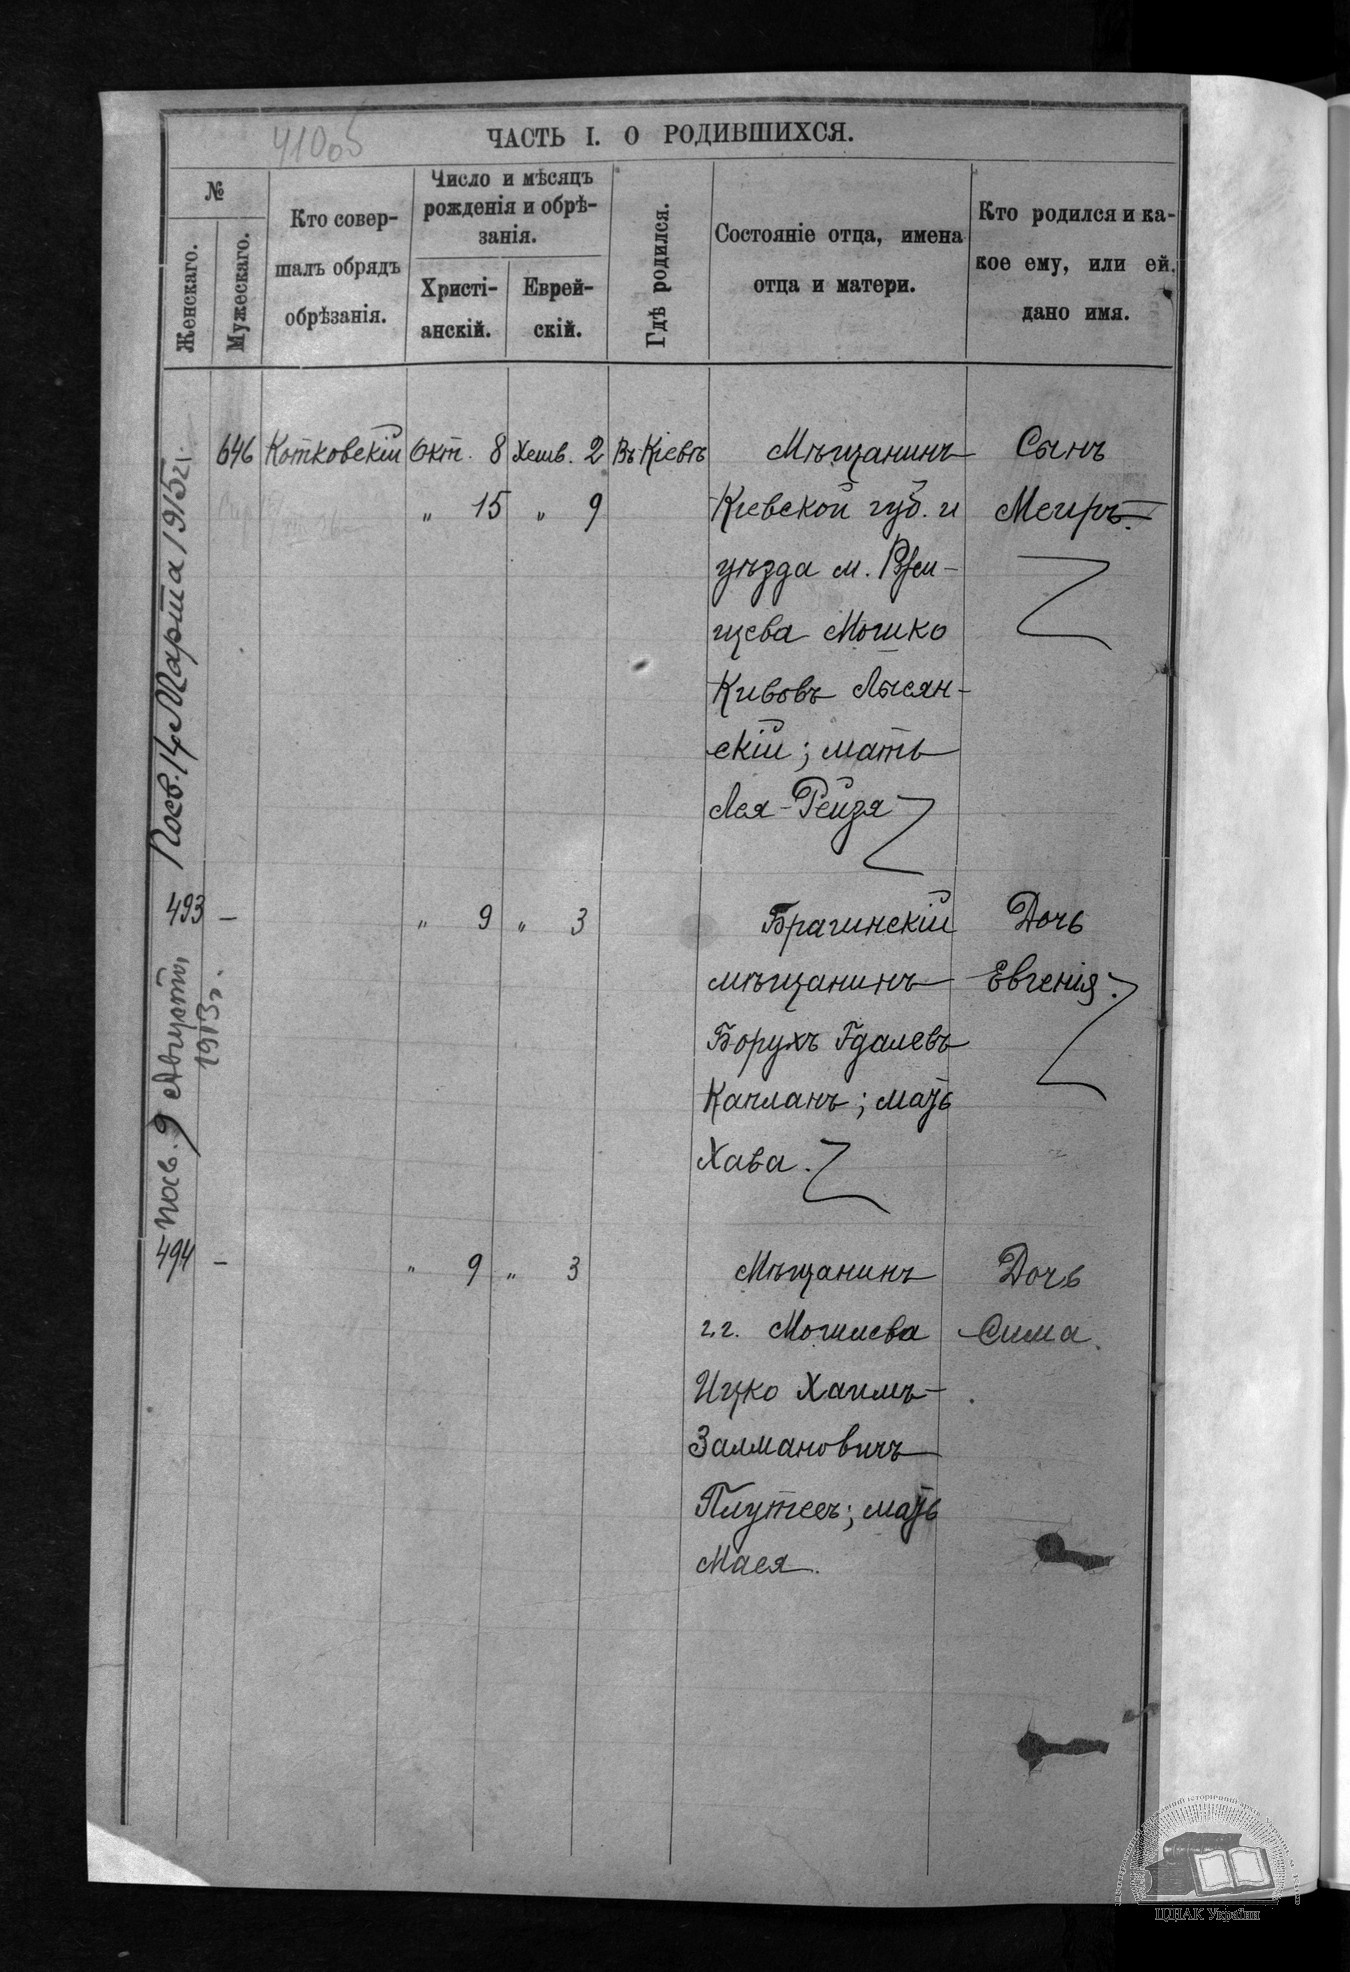 41005
ЧАСТЬ I. О РОДИВШИХСЯ.
№
Женскаго.
Мужескаго.
Кто совер-
шалъ обрядъ
обрѣзанія.
Число и мѣсяцъ
рожденія и обрѣ-
занія.
Христі-
анскій.
Еврей-
скій.
Гдѣ родился.
Состояніе отца, имена
отца и матери.
Кто родился и ка-
кое ему, или ей,
дано имя.
Посв. 14 Марта 1915 г.
646 Котковскій Окт. 8 Хешв. 2 Въ Кіевѣ
„ 15 „ 9
Мѣщанинъ
Кіевской губ. и
уѣзда м. Ржи-
щева Мошко
Кивовъ Лысян-
скій; мать
Лея-Рейзя
Сынъ
Меиръ.
493 – „ 9 „ 3
посв. 9 Августа
1913 г.
Брагинскій
мѣщанинъ
Борухъ Гдалевъ
Капланъ; мать
Хава.
Дочь
Евгенія.
494 – „ 9 „ 3
Мѣщанинъ
г. г. Могилева
Ицко Хаимъ-
Залмановичъ
мать
Мася.
Дочь
Сима.
ЦДІАК України